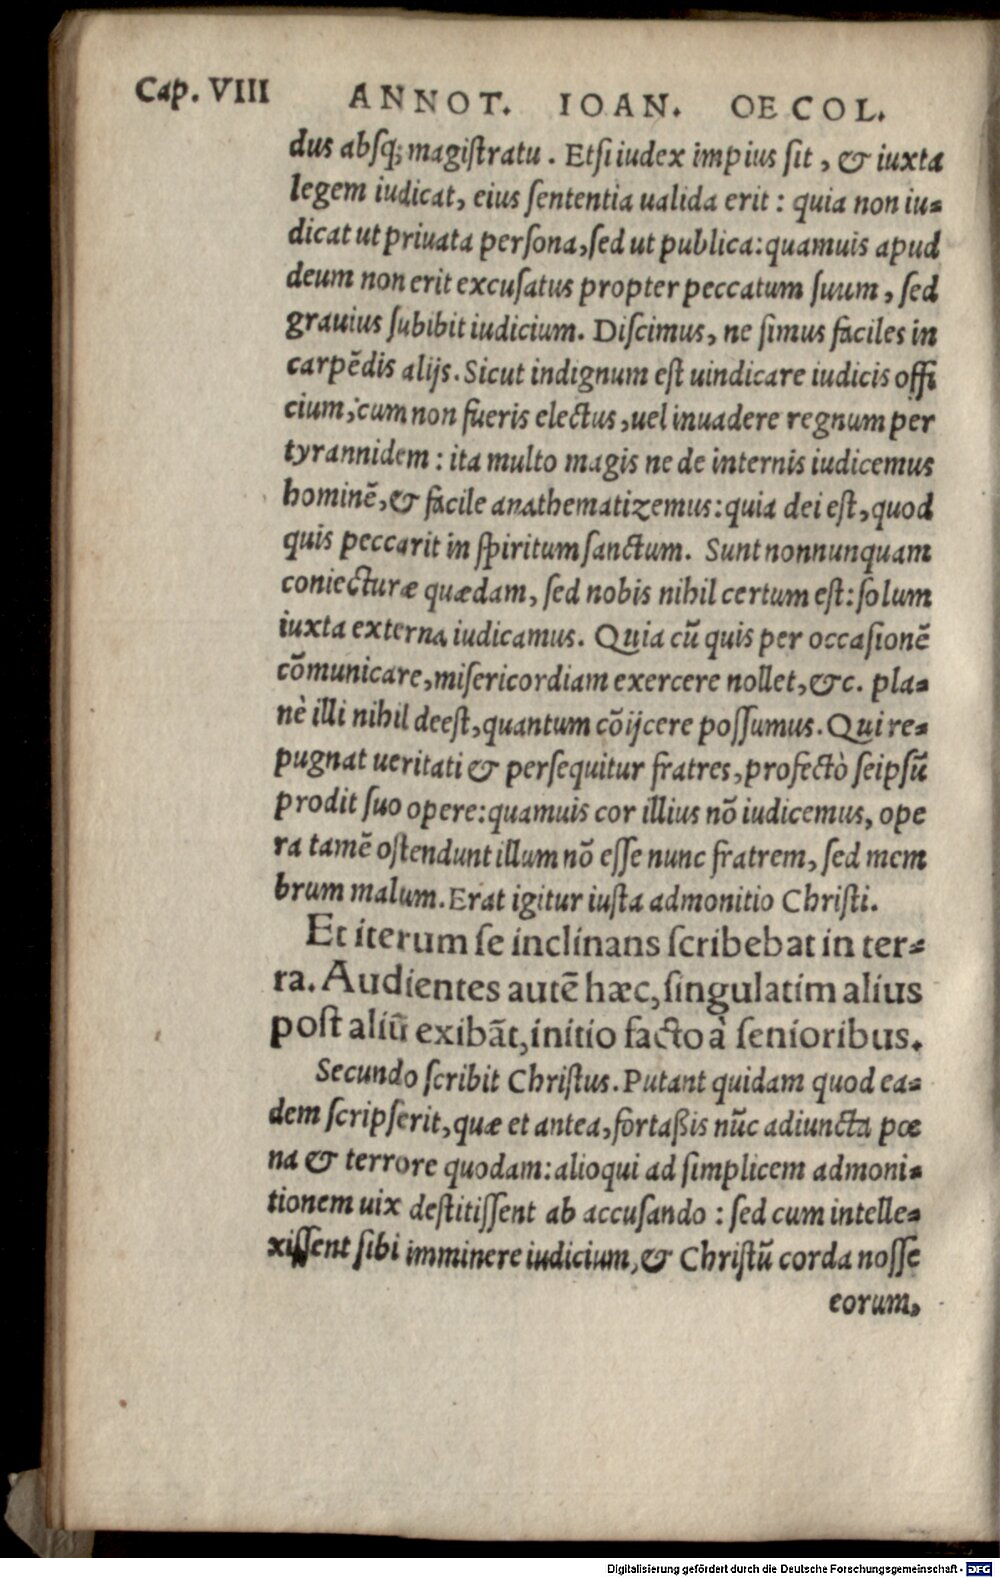 Cap. VIII ANNOT. IOAN. OECOL.
dus absq; magistratu. Etsi iudex impius sit, & iuxta
legem iudicat, eius sententia ualida erit: quia non iu-
dicat ut priuata persona, sed ut publica: quamuis apud
deum non erit excusatus propter peccatum suum, sed
grauius subibit iudicium. Discimus, ne simus faciles in
carpēdis alijs. Sicut indignum est uindicare iudicis offi
cium, cum non fueris electus, uel inuadere regnum per
tyrannidem: ita multo magis ne de internis iudicemus
hominē, & facile anathematizemus: quia dei est, quod
quis peccarit in spiritum sanctum. Sunt nonnunquam
coniecturæ quædam, sed nobis nihil certum est: solum
iuxta externa iudicamus. Quia cū quis per occasionē
cōmunicare, misericordiam exercere nollet, &c. pla-
nè illi nihil deest, quantum cōijcere possumus. Qui re-
pugnat ueritati & persequitur fratres, profectò seipsū
prodit suo opere: quamuis cor illius nō iudicemus, ope
ra tamē ostendunt illum nō esse nunc fratrem, sed mem
brum malum. Erat igitur iusta admonitio Christi.
Et iterum se inclinans scribebat in ter-
ra. Audientes autē hæc, singulatim alius
post aliū exibāt, initio facto à senioribus.
Secundo scribit Christus. Putant quidam quod ea-
dem scripserit, quæ et antea, fortaßis nūc adiuncta pœ
na & terrore quodam: alioqui ad simplicem admoni-
tionem uix destitissent ab accusando: sed cum intelle-
xissent sibi imminere iudicium, & Christū corda nosse
eorum,
Digitalisierung gefördert durch die Deutsche Forschungsgemeinschaft - DFG